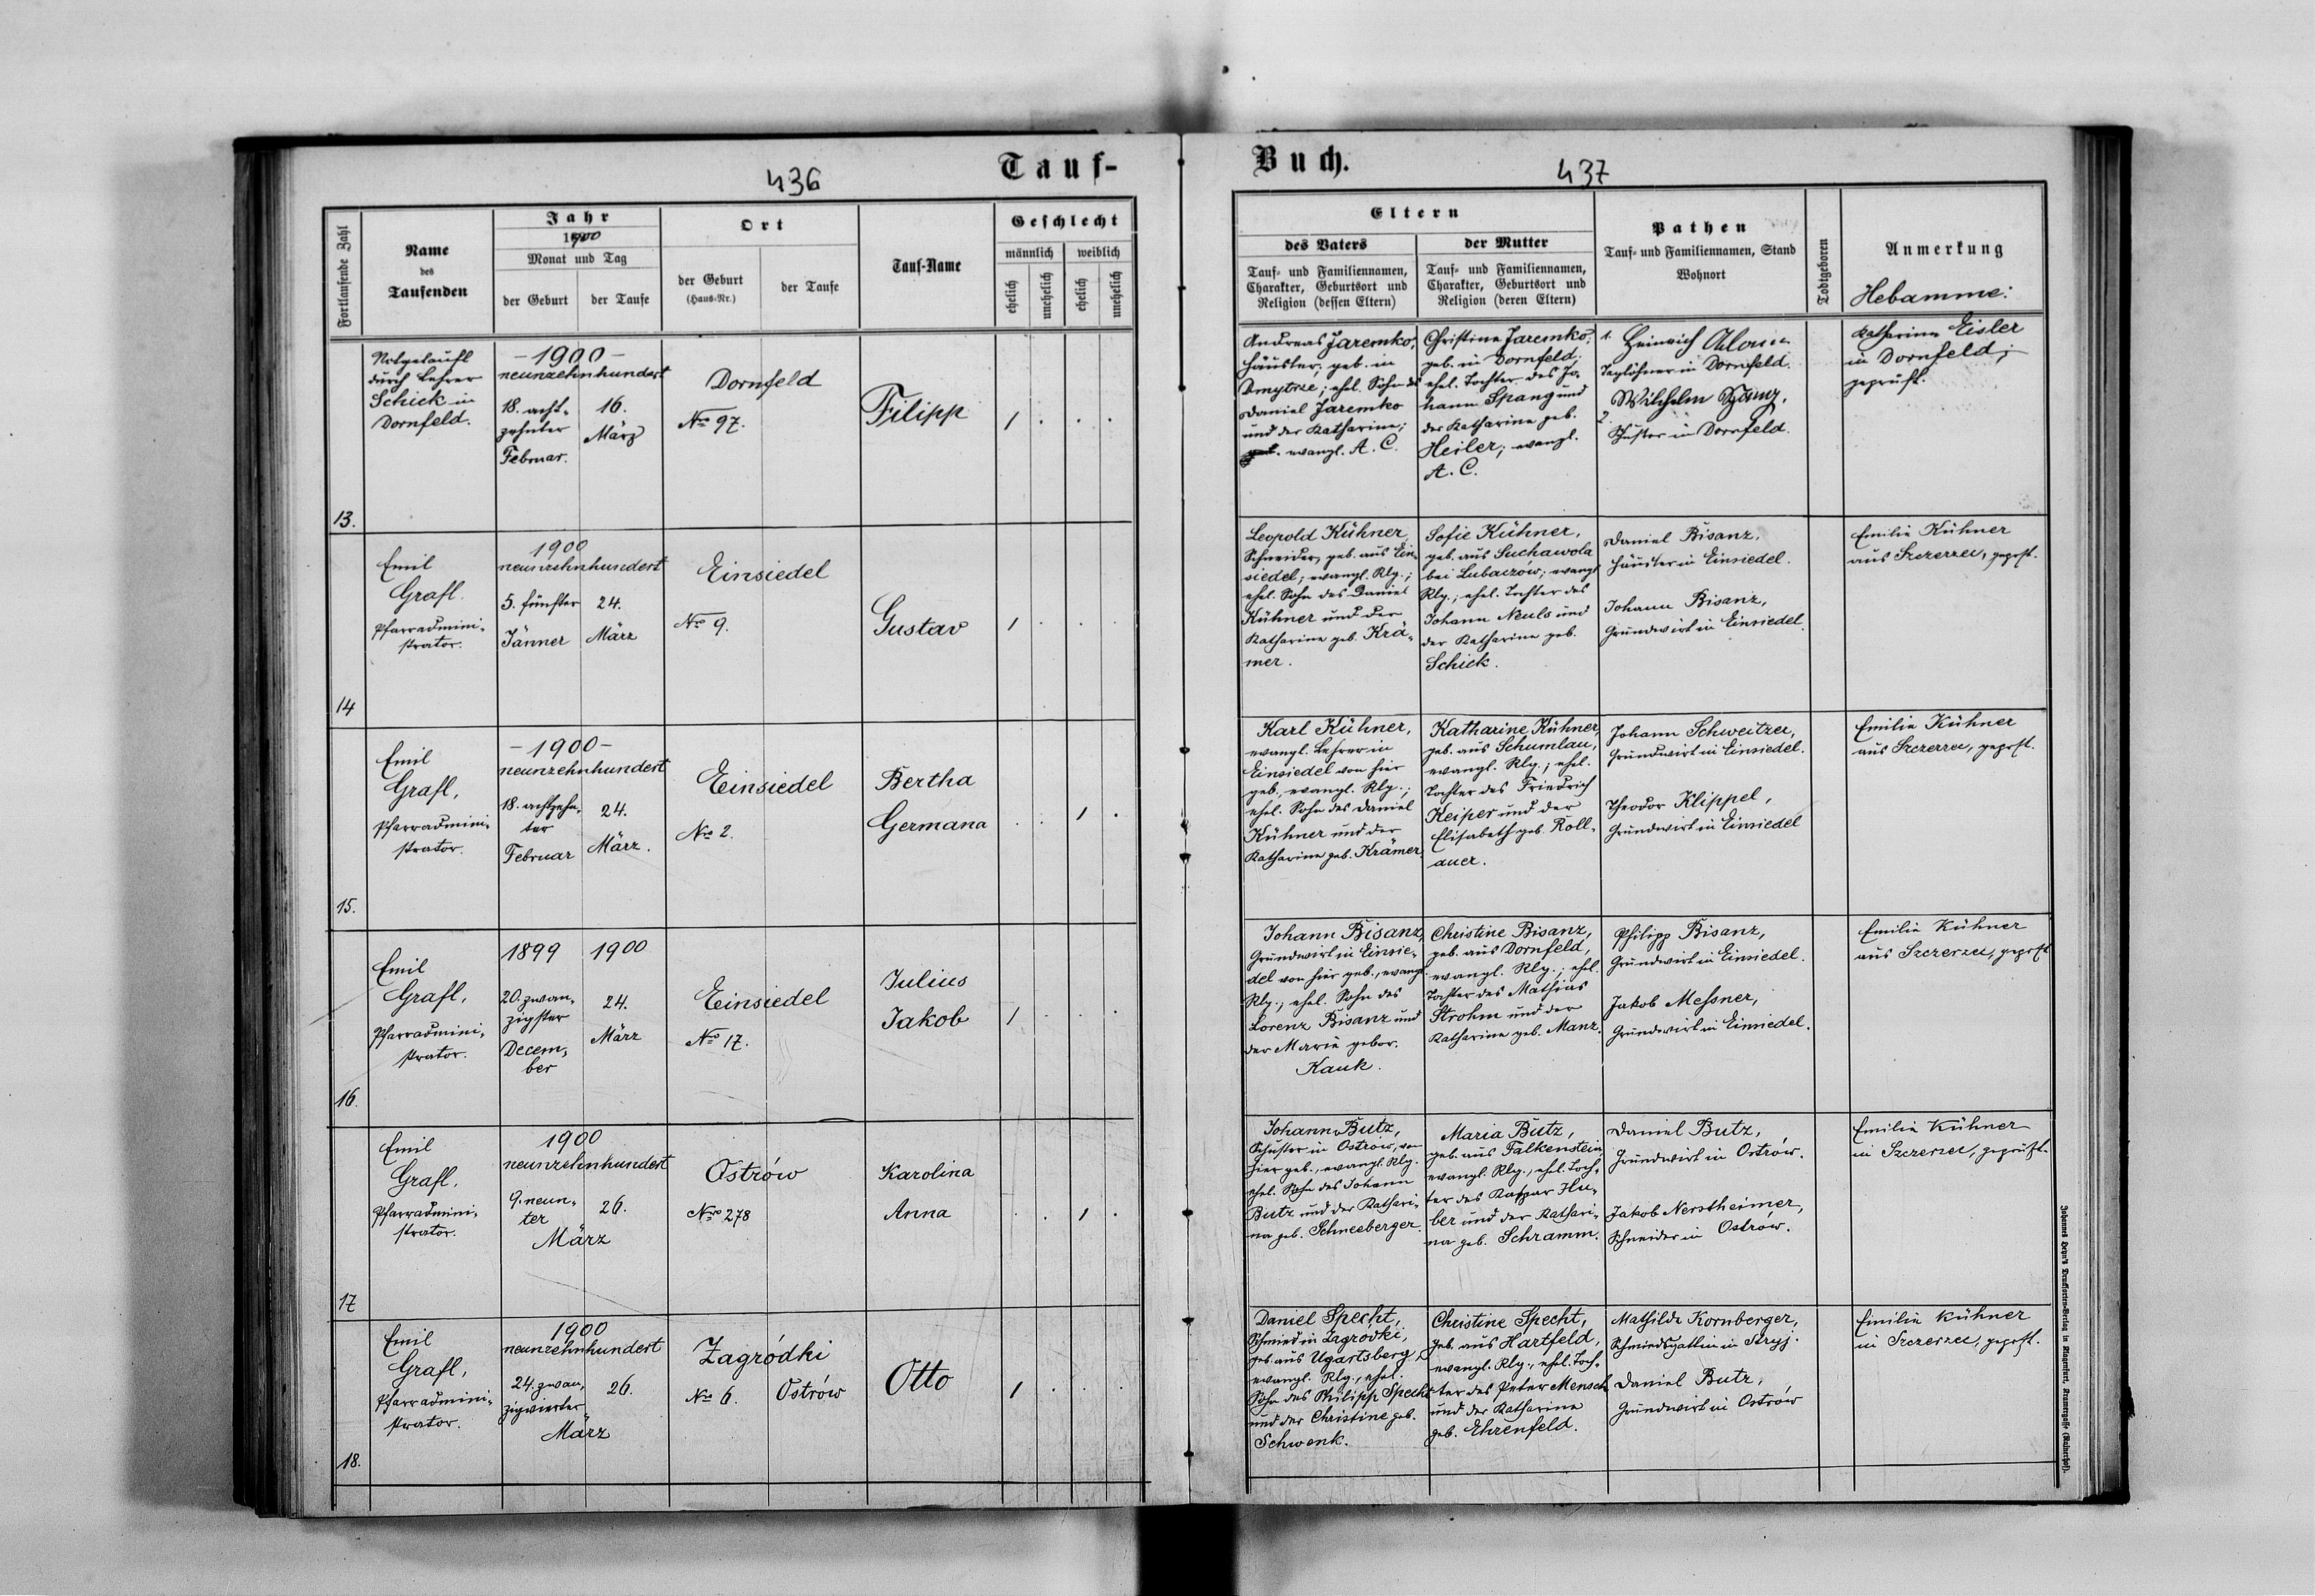 436
Tauf-
Fortlaufende Zahl
Name
des
Taufenden
Jahr
1900
Monat und Tag
der Geburt
der Taufe
Ort
der Geburt
(Haus-Nr.)
der Taufe
Tauf-Name
Geschlecht
männlich
weiblich
ehelich
unehelich
ehelich
unehelich
Notgetauft
durch Lehrer
Schick in
Dornfeld.
- 1900 -
neunzehnhundert
18. acht-
zehnter
Februar.
16.
März
Dornfeld
No 97.
Filipp
1 . . .
13.
Emil
Grafl.
Pfarradmini-
strator.
1900
neunzehnhundert
5. fünfter
Jänner
24.
März
Einsiedel
No 9.
Gustav
1 . . .
14
Emil
Grafl,
Pfarradmini-
strator.
- 1900 -
neunzehnhundert
18. achtzehn-
ter
Februar
24.
März.
Einsiedel
No 2.
Bertha
Germana
. . 1 .
15.
Emil
Grafl,
Pfarradmini-
strator.
1899
20. zwan-
zigster
Decem-
ber
1900
24.
März
Einsiedel
No 17.
Julius
Jakob
1 . . .
16.
Emil
Grafl,
Pfarradmini-
strator.
1900
neunzehnhundert
9. neun-
ter
26.
März
Ostrów
Nro 278
Karolina
Anna
. . 1 .
17
Emil
Grafl,
Pfarradmini-
strator.
1900
neunzehnhundert
24. zwan-
zigvierter
26.
März
Zagródki
No 6.
Ostrów
Otto
1 . . .
18.
Buch.
437
Eltern
des Vaters
Tauf- und Familiennamen,
Charakter, Geburtsort und
Religion (dessen Eltern)
der Mutter
Tauf- und Familiennamen,
Charakter, Geburtsort und
Religion (deren Eltern)
Pathen
Tauf- und Familiennamen, Stand
Wohnort
Todtgeboren
Anmerkung
Hebamme:
Andreas Jaremko,
Häusler, geb. in
Dmytrze; ehel. Sohn des
Daniel Jaremko
und der Katharina;
evangl. A. C.
Christine Jaremko,
geb. in Dornfeld;
ehel. Tochter des Jo-
hann Spang und
der Katharina geb.
Heiler; evangl.
A. C.
1. Heinrich
Taglöhner in Dornfeld.
2. Wilhelm Spang,
Schuster in Dornfeld.
Katharina Eisler
in Dornfeld;
geprüft.
Leopold Kühner,
Schneider, geb. aus Ein-
siedel; evangl. Rlg.;
ehel. Sohn des Daniel
Kühner und der
Katharina geb. Krä-
mer.
Sofie Kühner,
geb. aus Suchawola
bei Lubaczów; evangl.
Rlg.; ehel. Tochter des
Johann Neuls und
der Katharina geb.
Schick.
Daniel Bisanz,
Häusler in Einsiedel.
Johann Bisanz,
Grundwirt in Einsiedel.
Emilie Kühner
aus Szczerzec, geprft.
Karl Kühner,
evangl. Lehrer in
Einsiedel von hier
geb., evangl. Rlg.;
ehel. Sohn des Daniel
Kühner und der
Katharina geb. Krämer.
Katharine Kühner,
geb. aus Schumlau,
evangl. Rlg.; ehel.
Tochter des Friedrich
Keiper und der
Elisabeth geb. Roll-
auer.
Johann Schweitzer,
Grundwirt in Einsiedel.
Theodor Klippel,
Grundwirt in Einsiedel
Emilie Kühner
aus Szczerzec, geprft.
Johann Bisanz,
Grundwirt in Einsie-
del von hier geb., evangl.
Rlg.; ehel. Sohn des
Lorenz Bisanz und
der Marie gebor.
Kauk.
Christine Bisanz,
geb. aus Dornfeld,
evangl. Rlg.; ehel.
Tochter des Mathias
Strohm und der
Katharina geb. Manz.
Philipp Bisanz,
Grundwirt in Einsiedel.
Jakob Messner,
Grundwirt in Einsiedel.
Emilie Kühner
aus Szczerzec, geprft
Johann Butz,
Schuster in Ostrów, von
hier geb., evangl. Rlg.
ehel. Sohn des Johann
Butz und der Kathari-
na geb. Schneeberger.
Maria Butz,
geb. aus Falkenstein,
evangl. Rlg., ehel. Toch-
ter des Kaspar Hu-
ber und der Kathari-
na geb. Schramm.
Daniel Butz,
Grundwirt in Ostrów.
Jakob Nerstheimer,
Schneider in Ostrów.
Emilie Kühner
in Szczerzec, geprüft.
Daniel Specht,
Schmied in Zagrodki,
geb. aus Ugartsberg,
evangl. Rlg., ehel.
Sohn des Philipp Specht
und der Christine geb.
Schwenk.
Christine Specht,
geb. aus Hartfeld,
evangl. Rlg., ehel. Toch-
ter des Peter Mensch
und der Katharina
geb. Ehrenfeld.
Mathilde Kornberger,
Schmiedsgattin in Stryj.
Daniel Butz,
Grundwirt in Ostrów
Emilie Kühner
in Szczerzec, geprft.
Johannes Heyn's Drucksorten-Verlag in Klagenfurt, Kramergasse (Rainerhof).